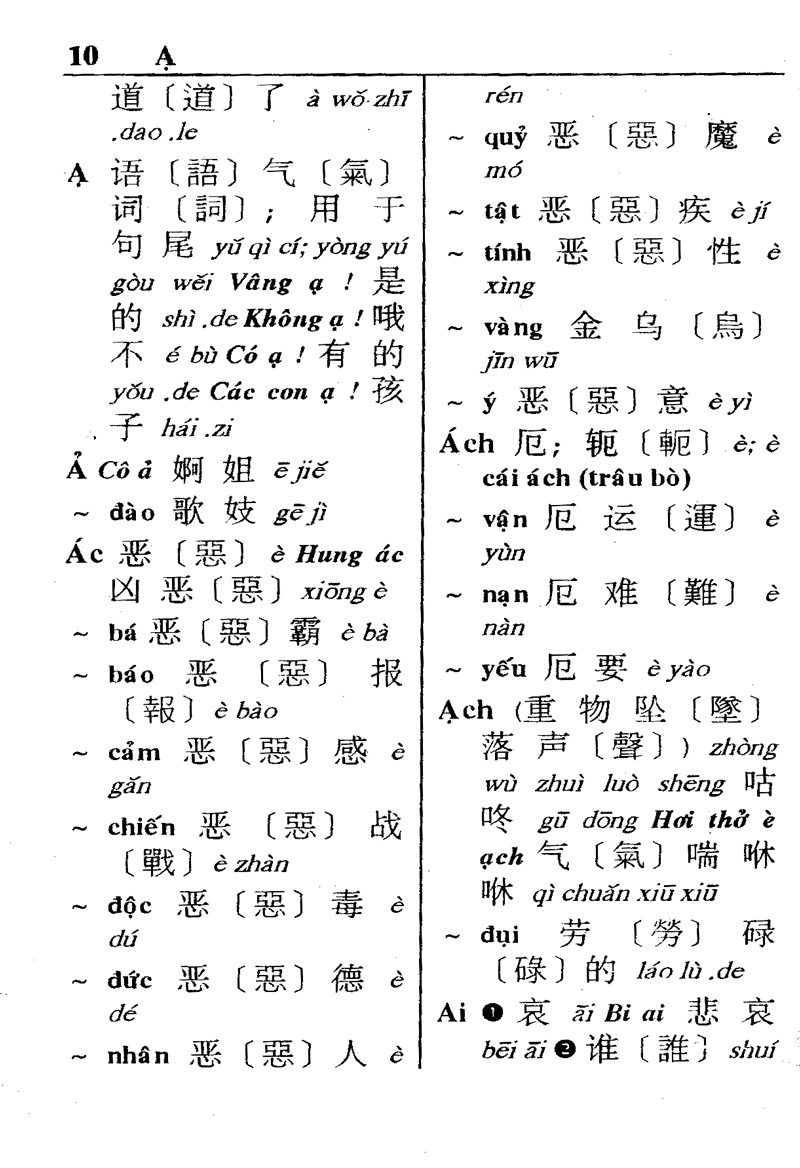 10 Ạ
道〔道〕了 à wǒ zhī
.dao .le
Ạ 语〔語〕气〔氣〕
词〔詞〕; 用 于
句 尾 yǔ qì cí; yòng yú
gòu wěi Vâng ạ ! 是
的 shì .de Không ạ ! 哦
不 é bù Có ạ ! 有 的
yǒu .de Các con ạ ! 孩
子 hái .zi
Ả Cô ả 婀 姐 ē jiě
~ đào 歌 妓 gē jì
Ác 恶〔惡〕è Hung ác
凶 恶〔惡〕xiōng è
~ bá 恶〔惡〕霸 è bà
~ báo 恶〔惡〕报
〔報〕è bào
~ cảm 恶〔惡〕感 è
gǎn
~ chiến 恶〔惡〕战
〔戰〕è zhàn
~ độc 恶〔惡〕毒 è
dú
~ đức 恶〔惡〕德 è
dé
~ nhân 恶〔惡〕人 è
rén
~ quỷ 恶〔惡〕魔 è
mó
~ tật 恶〔惡〕疾 è jí
~ tính 恶〔惡〕性 è
xìng
~ vàng 金 乌〔烏〕
jīn wū
~ ý 恶〔惡〕意 è yì
Ách 厄; 轭〔軛〕è; è
cái ách (trâu bò)
~ vận 厄 运〔運〕è
yùn
~ nạn 厄 难〔難〕è
nàn
~ yếu 厄 要 è yào
Ạch (重 物 坠〔墜〕
落 声〔聲〕) zhòng
wù zhuì luò shēng 咕
咚 gū dōng Hơi thở è
ạch 气〔氣〕喘 咻
咻 qì chuǎn xiū xiū
~ đụi 劳〔勞〕碌
〔碌〕的 láo lù .de
Ai ❶ 哀 āi Bi ai 悲 哀
bēi āi ❷ 谁〔誰〕shuí